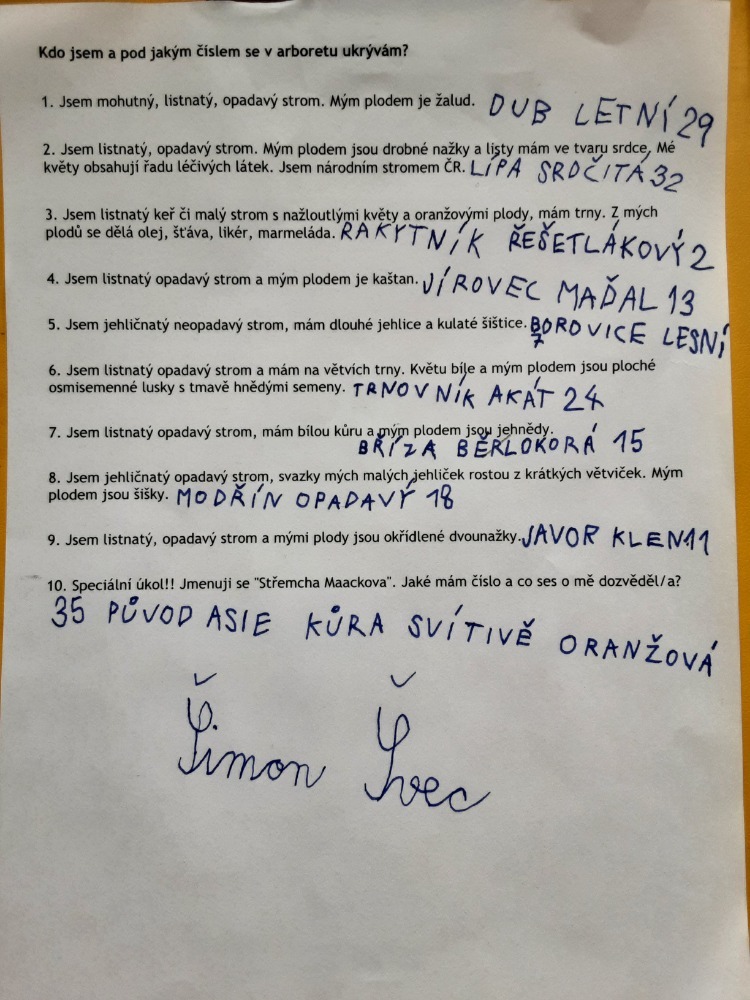 Kdo jsem a pod jakým číslem se v arboretu ukrývám?
1. Jsem mohutný, listnatý, opadavý strom. Mým plodem je žalud. DUB LETNÍ 29
2. Jsem listnatý, opadavý strom. Mým plodem jsou drobné nažky a listy mám ve tvaru srdce. Mé
květy obsahují řadu léčivých látek. Jsem národním stromem ČR. LÍPA SRDČITÁ 32
3. Jsem listnatý keř či malý strom s nažloutlými květy a oranžovými plody, mám trny. Z mých
plodů se dělá olej, šťáva, likér, marmeláda. RAKYTNÍK ŘEŠETLÁKOVÝ 2
4. Jsem listnatý opadavý strom a mým plodem je kaštan. JÍROVEC MAĎAL 13
5. Jsem jehličnatý neopadavý strom, mám dlouhé jehlice a kulaté šištice. BOROVICE LESNÍ
7
6. Jsem listnatý opadavý strom a mám na větvích trny. Květu bíle a mým plodem jsou ploché
osmisemenné lusky s tmavě hnědými semeny. TRNOVNÍK AKÁT 24
7. Jsem listnatý opadavý strom, mám bílou kůru a mým plodem jsou jehnědy.
BŘÍZA BĚRLOKORÁ 15
8. Jsem jehličnatý opadavý strom, svazky mých malých jehliček rostou z krátkých větviček. Mým
plodem jsou šišky. MODŘÍN OPADAVÝ 18
9. Jsem listnatý, opadavý strom a mými plody jsou okřídlené dvounažky. JAVOR KLEN 11
10. Speciální úkol!! Jmenuji se "Střemcha Maackova". Jaké mám číslo a co ses o mě dozvěděl/a?
35 PŮVOD ASIE KŮRA SVÍTIVĚ ORANŽOVÁ
Šimon Švec